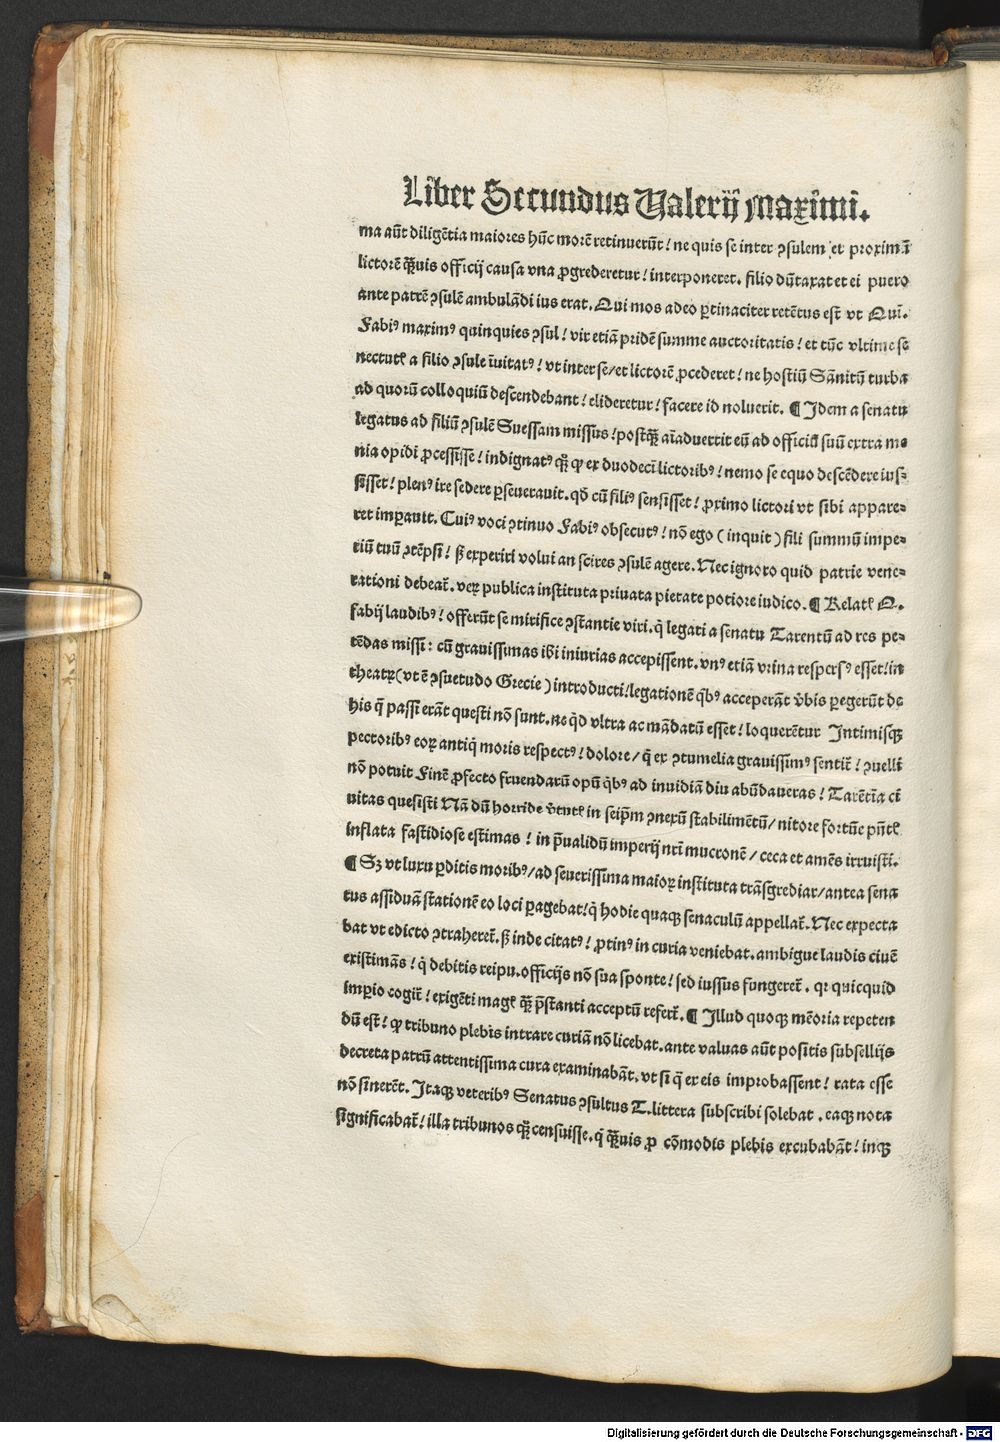 Liber Secundus Ualerij maximi.
ma aūt diligētia maiores hūc morē retinuerūt! ne quis se inter ꝯsulem et proximū
lictorē q̄uis officij causa vna ꝓgrederetur! interponeret. filio dūtaxat et ei puero
ante patrē ꝯsulē ambulādi ius erat. Qui mos adeo ꝑtinaciter retētus est vt Qui.
Fabiꝰ maximꝰ quinquies ꝯsul! vir etiā pridē summe auctoritatis! et tūc vltime se
nectutꝭ a filio ꝯsule īuitatꝰ! vt inter se/et lictorē ꝓcederet! ne hostiū Sānitū turba
ad quorū colloquiū descendebant! elideretur! facere id noluerit. ¶ Idem a senatu
legatus ad filiū ꝯsulē Suessam missus! postq̄ aīaduertit eū ad officiū suū extra me
nia opidi ꝓcessisse! indignatꝰ q̄ ꝙ ex duodeci lictoribꝰ! nemo se equo descēdere ius⸗
sisset! plenꝰ ire sedere ꝑseuerauit. qđ cū filiꝰ sensisset! ꝓximo lictori vt sibi appare⸗
ret imꝑauit. Cuiꝰ voci ꝯtinuo Fabiꝰ obsecutꝰ! nō ego (inquit) fili summū impe⸗
riū tuū ꝯtēpsi! sꝫ experiri volui an scires ꝯsulē agere. Nec ignoro quid patrie vene⸗
rationi debeat̄. veꝝ publica instituta priuata pietate potiore iudico. ¶ Relatꝭ Q.
fabij laudibꝰ! offerūt se mirifice ꝯstantie viri. q̄ legati a senatu Tarentū ad res pe⸗
tēdas missi: cū grauissimas ibi iniurias accepissent. vnꝰ etiā vrina respersꝰ esset! in
theatꝝ (vt ē ꝯsuetudo Grecie) introducti! legationē qͥbꝰ acceperāt v̄bis ꝑegerūt de
his q̄ passi erāt questi nō sunt. ne qͥd vltra ac mādatū esset! loquerētur Intimisqꝫ
pectoribꝰ eoꝝ antiq̄ moris respectꝰ! dolore/ q̄ ex ꝯtumelia grauissimꝰ sentit̄! ꝯuelli
nō potuit Finē ꝓfecto fruendarū opū qͥbꝰ ad inuidiā diu abūdaueras! Tarētīa ci
uitas quesisti Nā dū horride v̄tutꝭ in seip̄m ꝯnexū stabilimētū/ nitore fortūe p̄ntꝭ
inflata fastidiose estimas! in p̄ualidū imperij nr̄i mucronē/ ceca et amēs irruisti.
¶ Sꝫ vt luxu ꝑditis moribꝰ/ ad seuerissima maioꝝ instituta trāsgrediar/ antea sena
tus assiduā stationē eo loci ꝑagebat! q̄ hodie quaqꝫ senaculū appellat̄. Nec expecta
bat vt edicto ꝯtraheret̄. sꝫ inde citatꝰ! ꝓtinꝰ in curia veniebat. ambigue laudis ciuē
existimās! q̄ debitis reipu. officijs nō sua sponte! sed iussus fungeret̄. qꝛ quicquid
imꝑio cogit̄! exigēti magꝭ q̄ p̄stanti acceptū refert̄. ¶ Illud quoqꝫ mēoria repeten
dū est! ꝙ tribuno plebis intrare curiā nō licebat. ante valuas aūt positis subsellijs
decreta patrū attentissima cura examinabāt. vt si q̄ ex eis improbassent! rata esse
nō sinerēt. Itaqꝫ veteribꝰ Senatus ꝯsultus T. littera subscribi solebat. eaqꝫ nota
significabat̄! illa tribunos qꝫ censuisse. q̄ q̄uis ꝓ cōmodis plebis excubabāt! inqꝫ
Digitalisierung gefördert durch die Deutsche Forschungsgemeinschaft - DFG